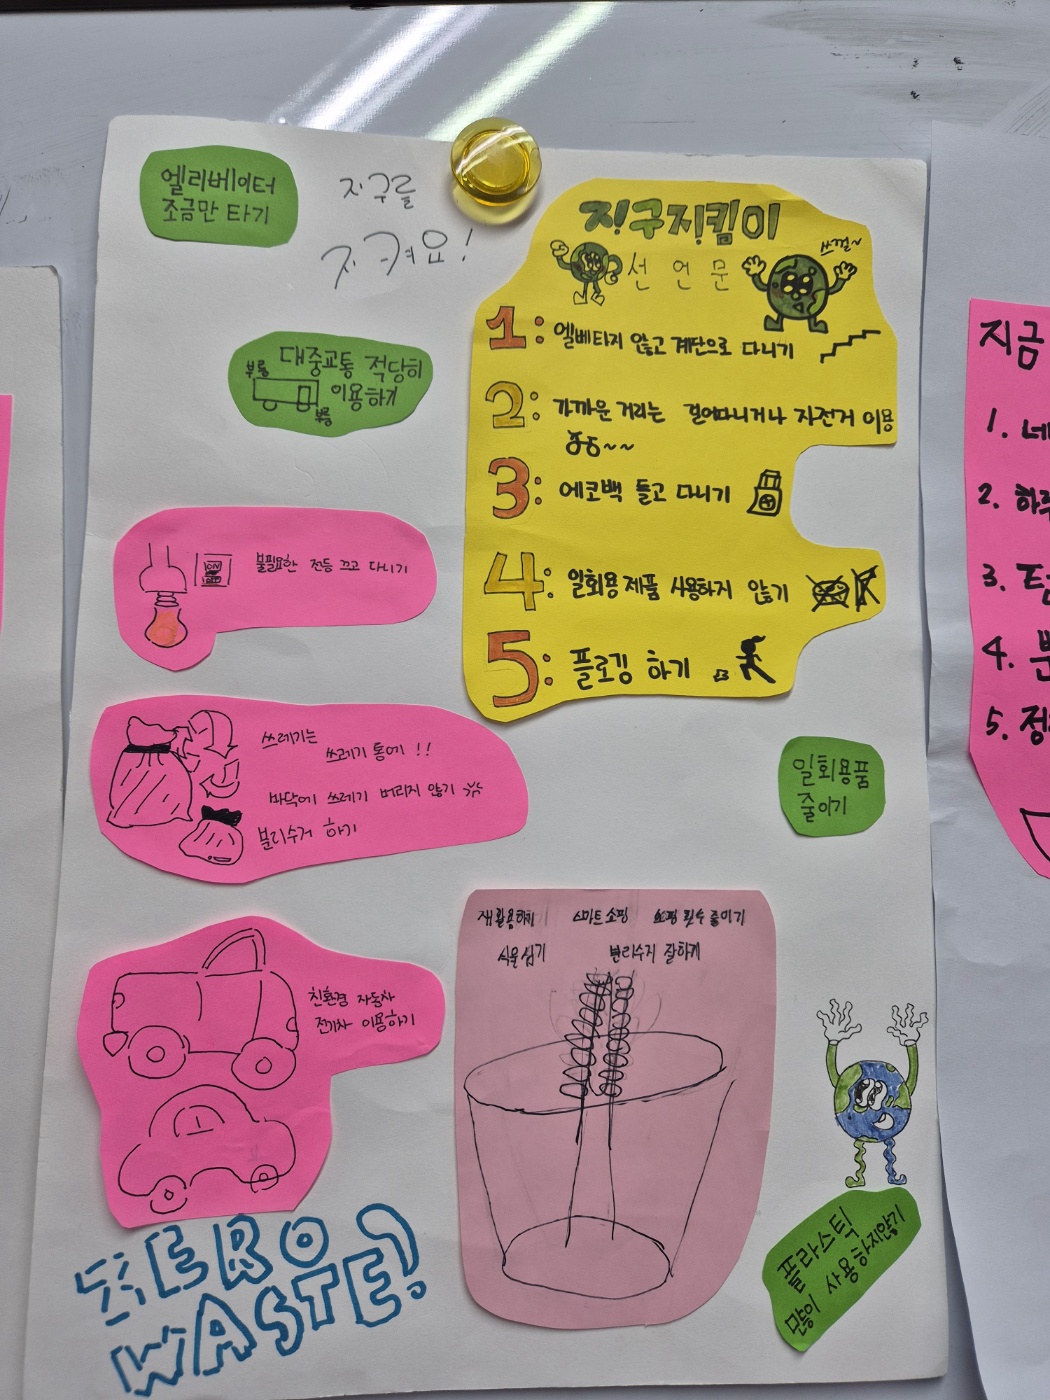 엘리베이터
조금만 타기
지구를
지켜요!
지구지킴이
선언문
쓰껄~
1: 엘베 타지 않고 계단으로 다니기
2: 가까운 거리는 걸어다니거나 자전거 이용
3: 에코백 들고 다니기
4: 일회용 제품 사용하지 않기
5: 플로깅 하기
부릉
대중교통 적당히
이용하기
부릉
ON
불필요한 전등 끄고 다니기
쓰레기는
쓰레기 통에!!
바닥에 쓰레기 버리지 않기
분리수거 하기
일회용품
줄이기
친환경 자동차
전기차 이용하기
재활용하기 스마트 쇼핑 쇼핑 횟수 줄이기
식물 심기 분리수거 잘하기
플라스틱
많이 사용하지않기
ZERO
WASTE?
지금
1. 네
2. 하루
3.
4. 분
5.